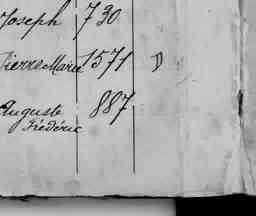 Joseph 730
Pierre Marie 1571 D
Auguste 887
Frédéric